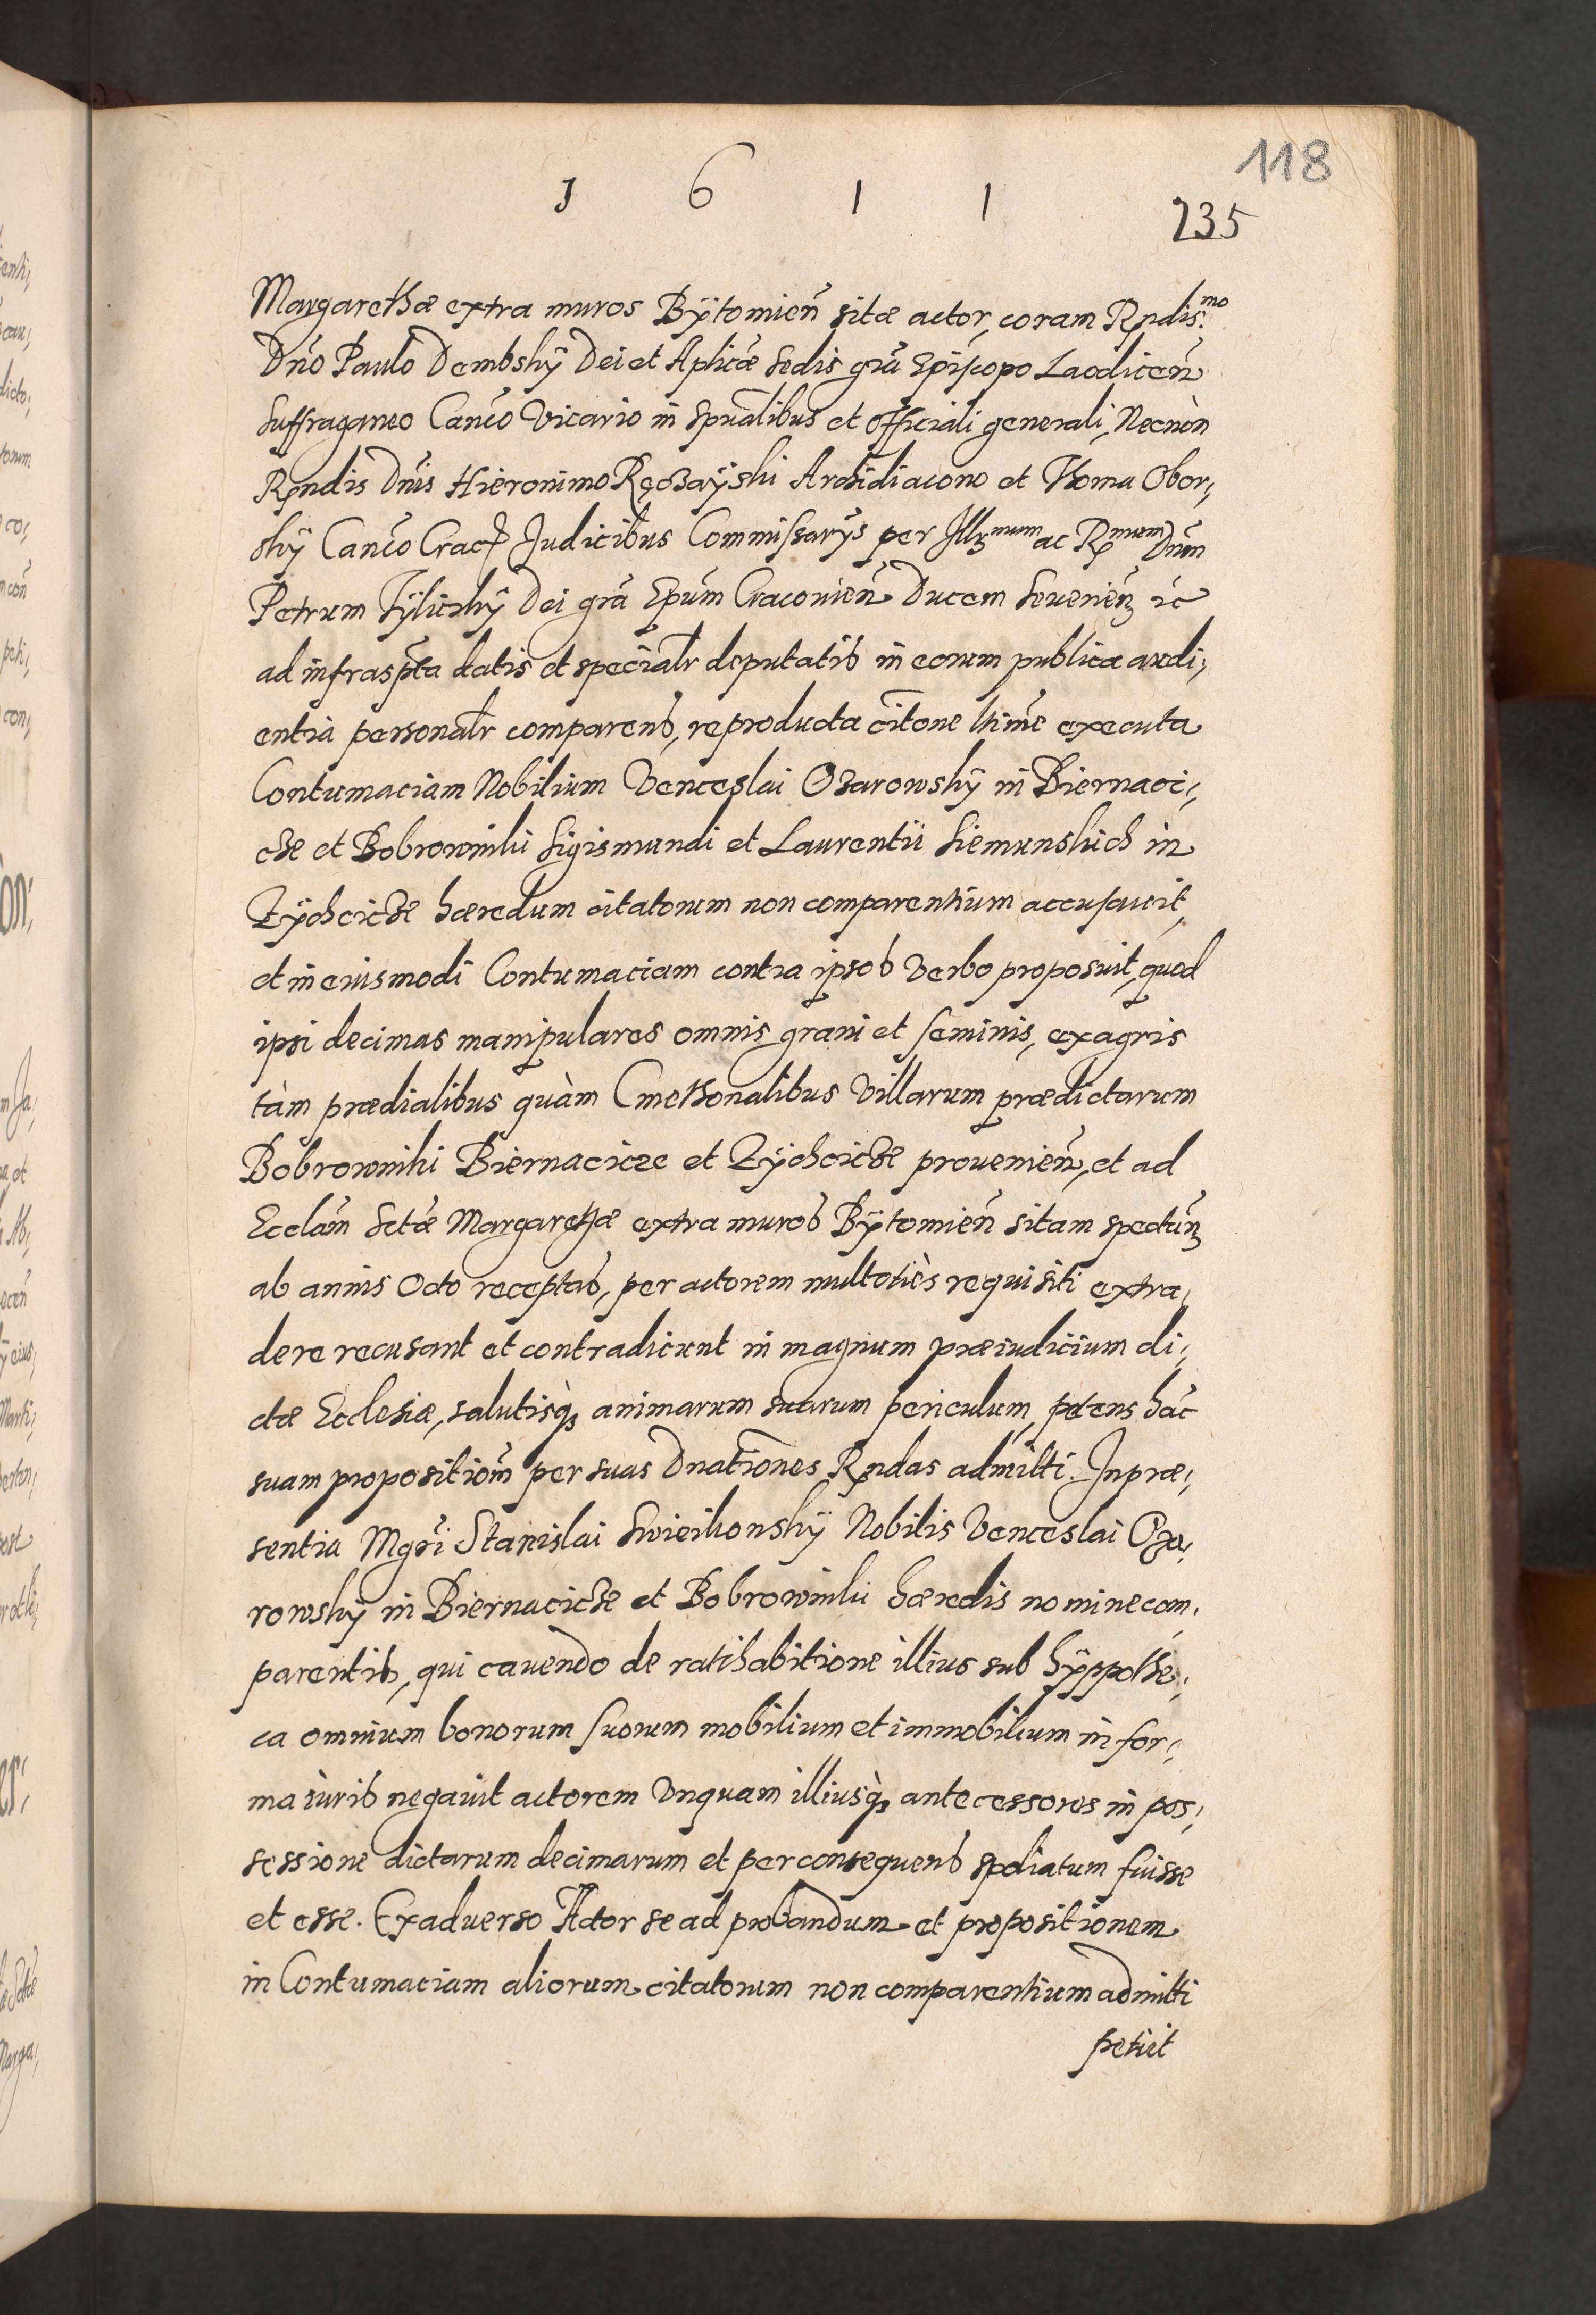 118
1 6 1 1
235
Margarethæ extra muros Bÿtomien̄ sitæ actor, coram Rndis.mo
Dn̄o Paulo Dembskÿ Dei et Aplicæ Sedis grā Episcopo Laodicen̄
Suffraganeo Canc̄o Vicario in Spūalibus et Officiali generali, Necnòn
Rndis Dn̄is Hieronimo Ręczaÿski Archidiacono et Thoma Obor,
skÿ Canc̄o Crac Judicibus Commissarÿs per Illmum ac Rmum Dnm
Petrum Tÿlickÿ Dei grā Epūm Cracouien̄ Ducem Seuerien̄ ꝛc
ad infrasp̄ta datis et specialr deputatis in eorum publica audi,
entia personalr comparens, reproducta cītone ltime executa
Contumaciam Nobilium Venceslai Ozarowskÿ in Biernaci,
cze et Bobrowniki Sigismundi et Laurentii Siemunskich in
Zÿchcicze hæredum citatorum non comparentium accusauit,
et in eiusmodi Contumaciam contra ipsos Verbo proposuit, quod
ipsi decimas manipulares omnis grani et seminis, ex agris
tàm prædialibus quàm Cmethonalibus Villarum prædictarum
Bobrowniki Biernacicze et Zÿchcicze prouenien̄, et ad
Ecclām Sctæ Margarethæ extra muros Bÿtomien̄ sitam spectan̄
ab annis Octo receptas, per actorem multotiès requisiti extra,
dere recusant et contradicunt in magnum præiudicium di,
ctæ Ecclesiæ, salutisq̀ animarum suarum periculum, petens hāc
suam propositiōm per suas Dnationes Rndas admitti. In præ,
sentia Mgrī Stanislai Swieikonskÿ Nobilis Venceslai Oza,
rowskÿ in Biernacicze et Bobrowniki hæredis nomine com,
parentis, qui cauendo de ratihabitione illius sub hÿppothe,
ca omnium bonorum suorum mobilium et immobilium in for,
ma iuris negauit actorem Vnquam illiusq̀ antecessores in pos,
sessione dictarum decimarum et per consequens spoliatum fuisse
et esse. Ex aduerso Actor se ad probandum et propositionem
in Contumaciam aliorum citatorum non comparentium admitti
petiit